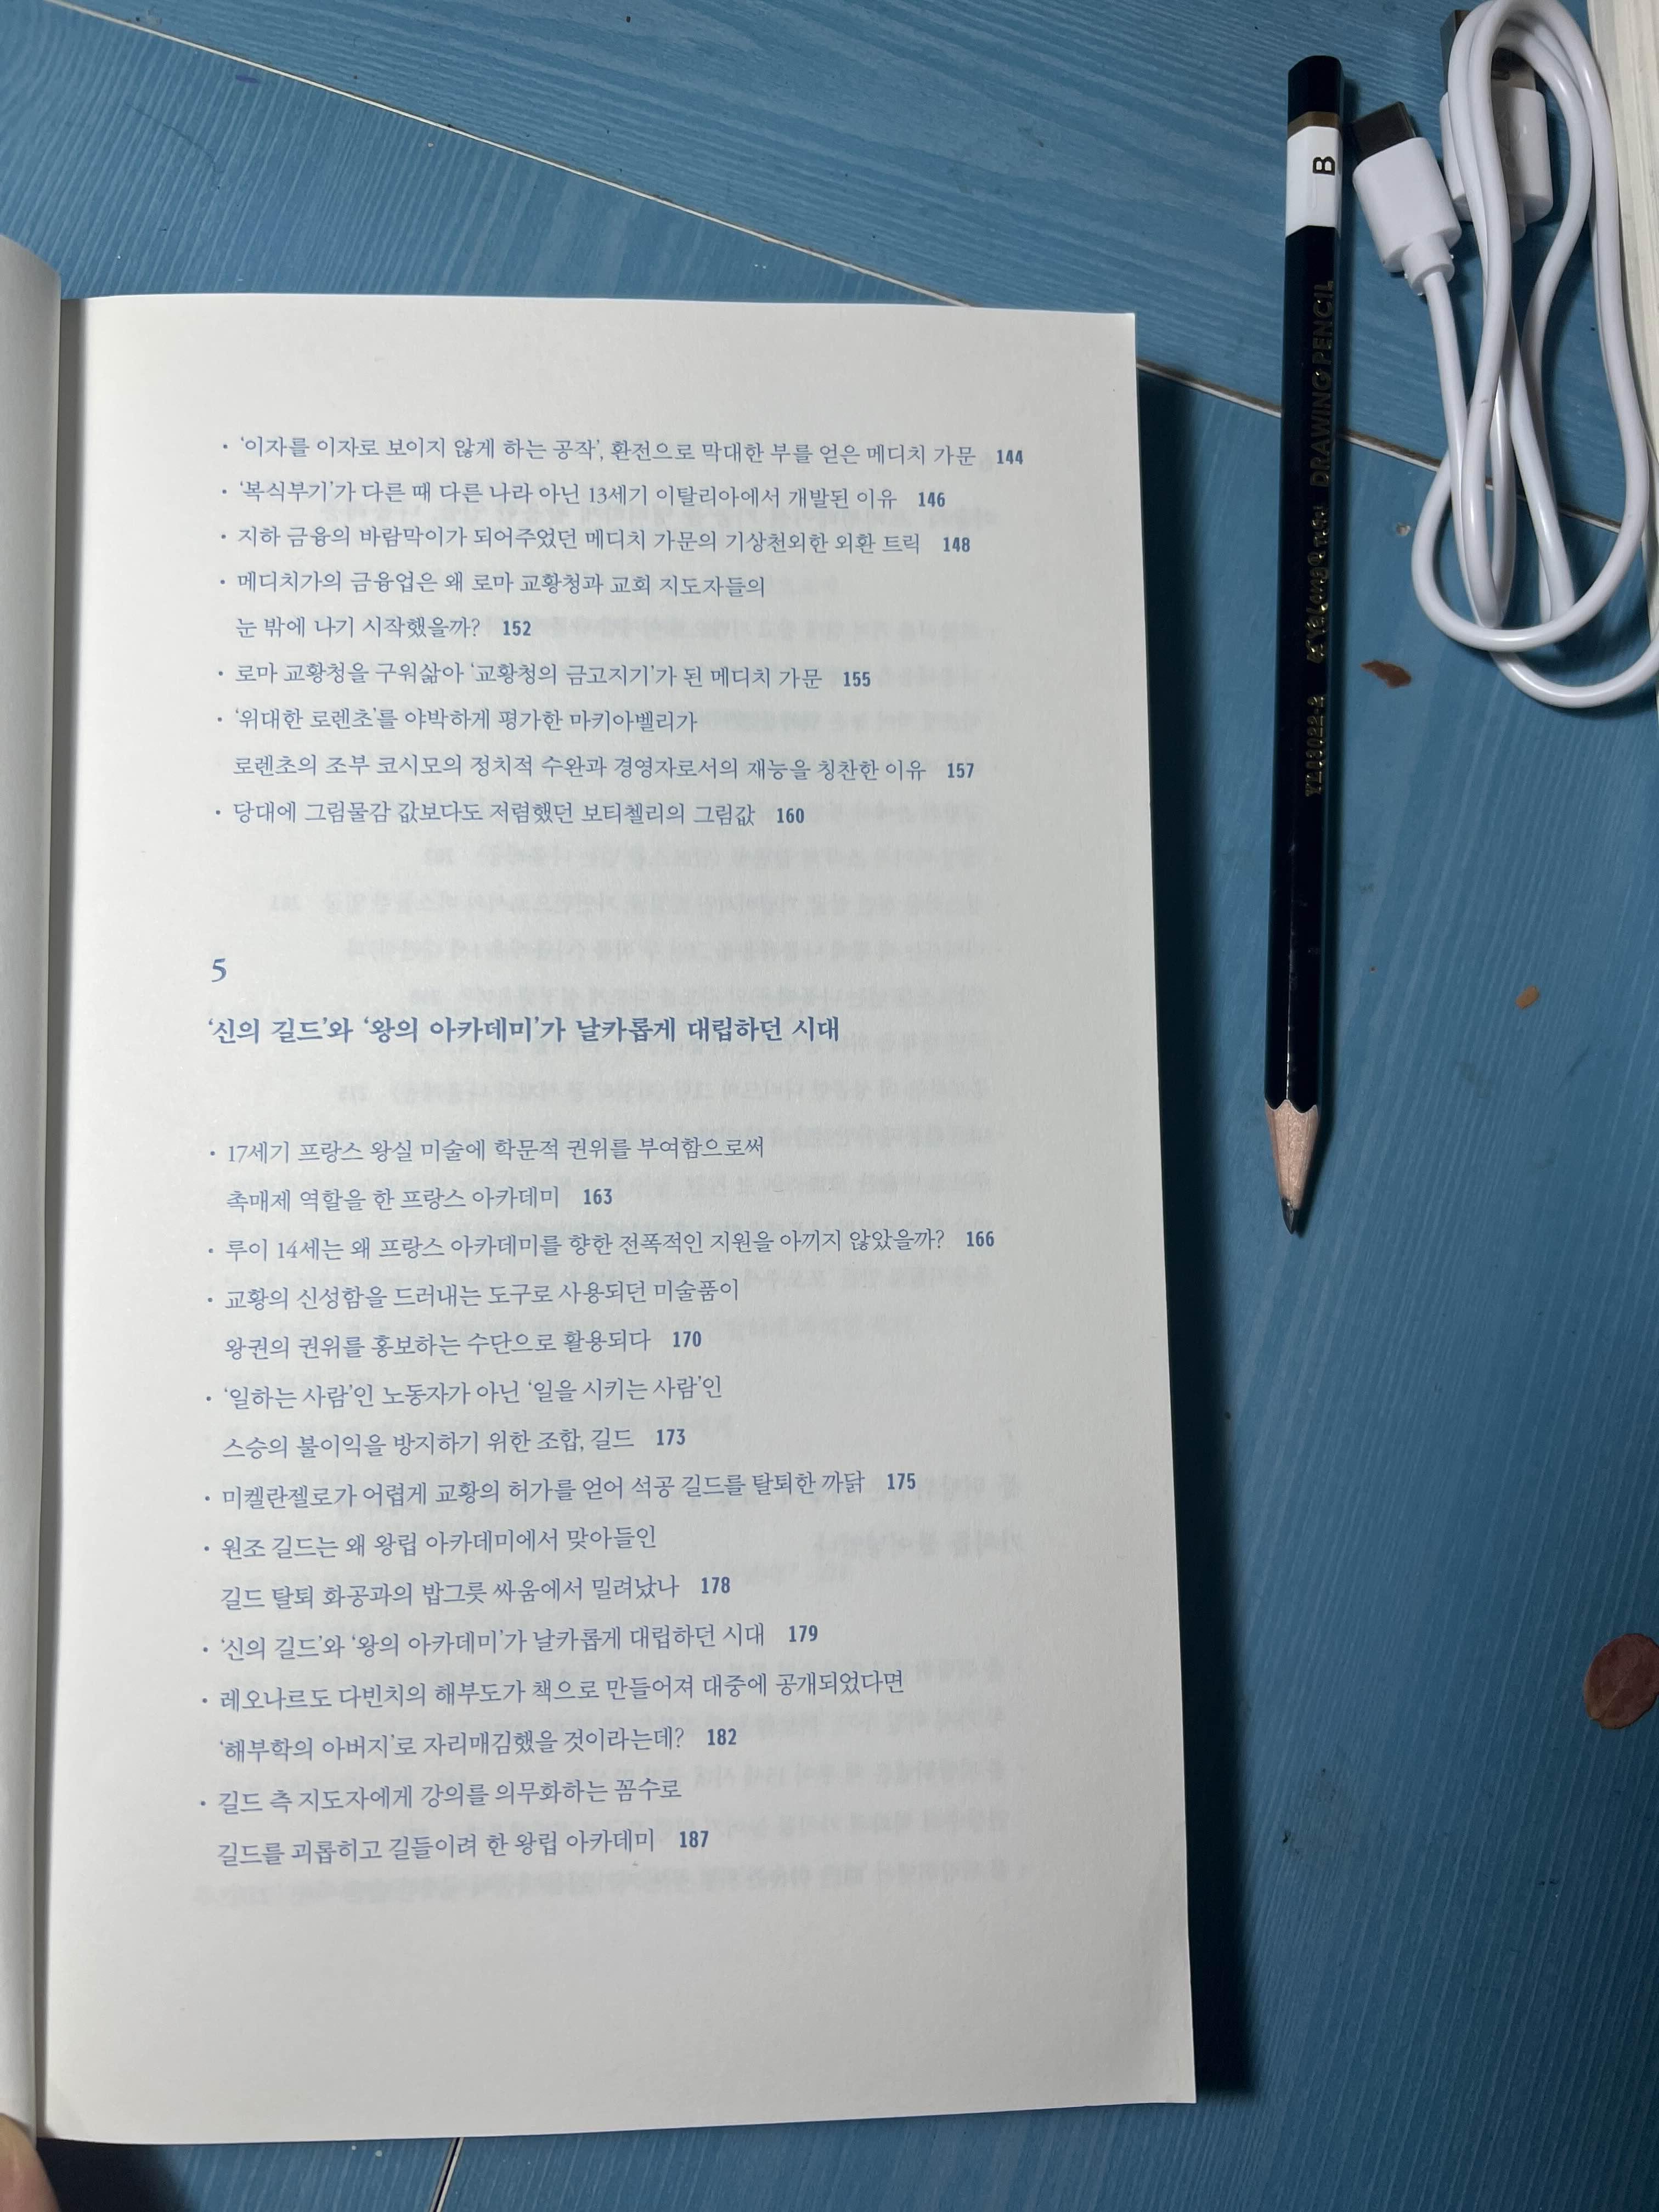 • ‘이자를 이자로 보이지 않게 하는 공작’, 환전으로 막대한 부를 얻은 메디치 가문 144
• ‘복식부기’가 다른 때 다른 나라 아닌 13세기 이탈리아에서 개발된 이유 146
• 지하 금융의 바람막이가 되어주었던 메디치 가문의 기상천외한 외환 트릭 148
• 메디치가의 금융업은 왜 로마 교황청과 교회 지도자들의
눈 밖에 나기 시작했을까? 152
• 로마 교황청을 구워삶아 ‘교황청의 금고지기’가 된 메디치 가문 155
• ‘위대한 로렌초’를 야박하게 평가한 마키아벨리가
로렌초의 조부 코시모의 정치적 수완과 경영자로서의 재능을 칭찬한 이유 157
• 당대에 그림물감 값보다도 저렴했던 보티첼리의 그림값 160
5
‘신의 길드’와 ‘왕의 아카데미’가 날카롭게 대립하던 시대
• 17세기 프랑스 왕실 미술에 학문적 권위를 부여함으로써
촉매제 역할을 한 프랑스 아카데미 163
• 루이 14세는 왜 프랑스 아카데미를 향한 전폭적인 지원을 아끼지 않았을까? 166
• 교황의 신성함을 드러내는 도구로 사용되던 미술품이
왕권의 권위를 홍보하는 수단으로 활용되다 170
• ‘일하는 사람’인 노동자가 아닌 ‘일을 시키는 사람’인
스승의 불이익을 방지하기 위한 조합, 길드 173
• 미켈란젤로가 어렵게 교황의 허가를 얻어 석공 길드를 탈퇴한 까닭 175
• 원조 길드는 왜 왕립 아카데미에서 맞아들인
길드 탈퇴 화공과의 밥그릇 싸움에서 밀려났나 178
• ‘신의 길드’와 ‘왕의 아카데미’가 날카롭게 대립하던 시대 179
• 레오나르도 다빈치의 해부도가 책으로 만들어져 대중에 공개되었다면
‘해부학의 아버지’로 자리매김했을 것이라는데? 182
• 길드 측 지도자에게 강의를 의무화하는 꼼수로
길드를 괴롭히고 길들이려 한 왕립 아카데미 187
B
DRAWING PENCIL
YL83022-2